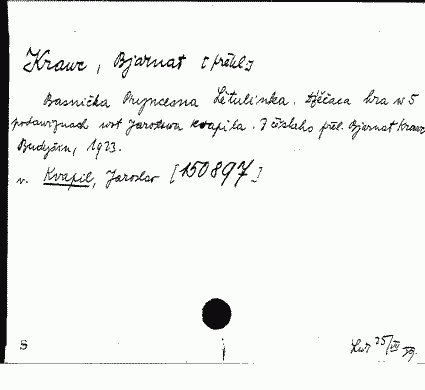 Krawc, Bjarnat [přeł.]
Basnička Pryncesna Lětulinka. Dźěćaca hra w 5
podawiznach wot Jarosława Kvapila. Z čěskeho přeł. Bjarnat Krawc
Budyšin, 1923.
v. Kvapil, Jaroslav [150897]
S
25/VII 59.